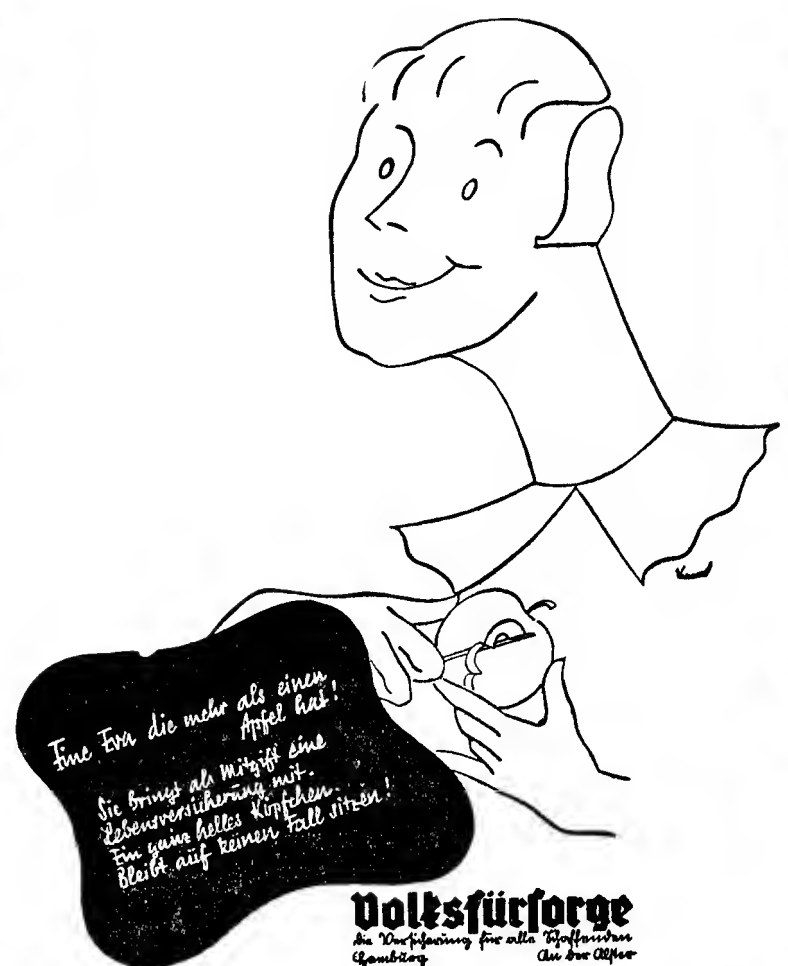 Eine Eva die mehr als einen
Apfel hat!
Sie bringt als Mitgift eine
Lebensversicherung mit.
Ein ganz helles Köpfchen.
Bleibt auf keinen Fall sitzen!
Volksfürsorge
die Versicherung für alle Schaffenden
Hamburg An der Alster